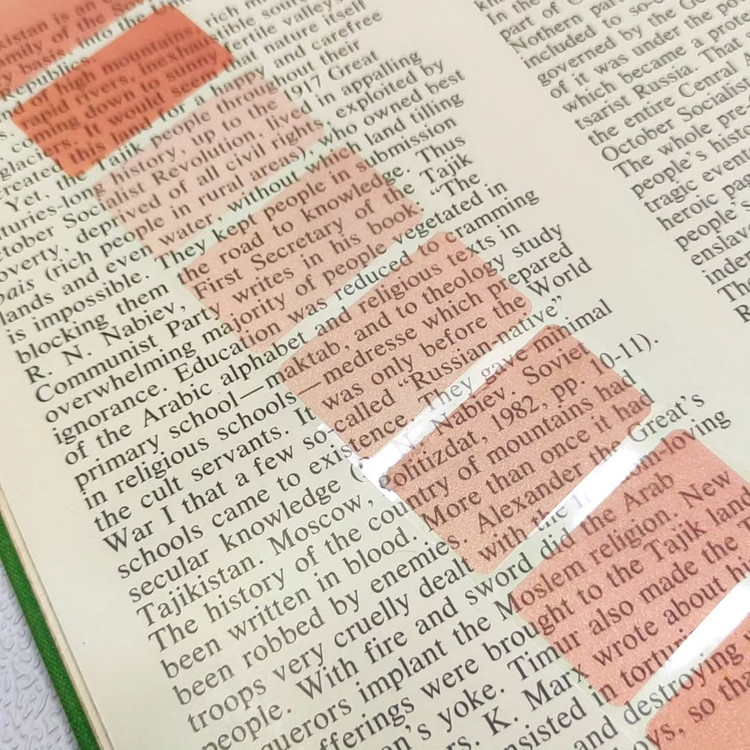 kistan is an
family of the Sov
basis into the
republics.
of high mountains,
rapid rivers, inexhaus
glaciers coming down to sunny
It would seem
created this land for a happy and carefree
Yet the Tajik people throughout their
centuries-long history, up to the 1917 Great
October Socialist Revolution, lived in appalling
poverty, deprived of all civil rights, exploited by
bais (rich people in rural areas), who owned best
lands and even water, without which land tilling
is impossible. They kept people in submission
blocking them the road to knowledge. Thus
R. N. Nabiev, First Secretary of the Tajik
Communist Party writes in his book: "The
overwhelming majority of people vegetated in
ignorance. Education was reduced to cramming
of the Arabic alphabet and religious texts in
primary school—maktab, and to theology study
in religious schools—medresse which prepared
the cult servants. It was only before the World
War I that a few so-called "Russian-native"
schools came to existence. They gave minimal
secular knowledge ( N. Nabiev. Soviet
Tajikistan. Moscow, Politizdat, 1982, pp. 10-11).
The history of the country of mountains had
been written in blood. More than once it had
been robbed by enemies. Alexander the Great's
troops very cruelly dealt with the -loving
people. With fire and sword did the Arab
querors implant the Moslem religion. New
fferings were brought to the Tajik land
an's yoke. Timur also made the
rs. K. Marx wrote about hi
sisted in torturing
and destroying
ys, so tha
rich
fertile valleys
nature itself
In the
part of
Nothern par
included to so-
governed by the G
of it was under the po
which became a prote
tsarist Russia. That s
the entire Cenral A
October Socialis
The whole pre-
people's hist
tragic event
heroic pag
people s
enslav
inde
Th
R